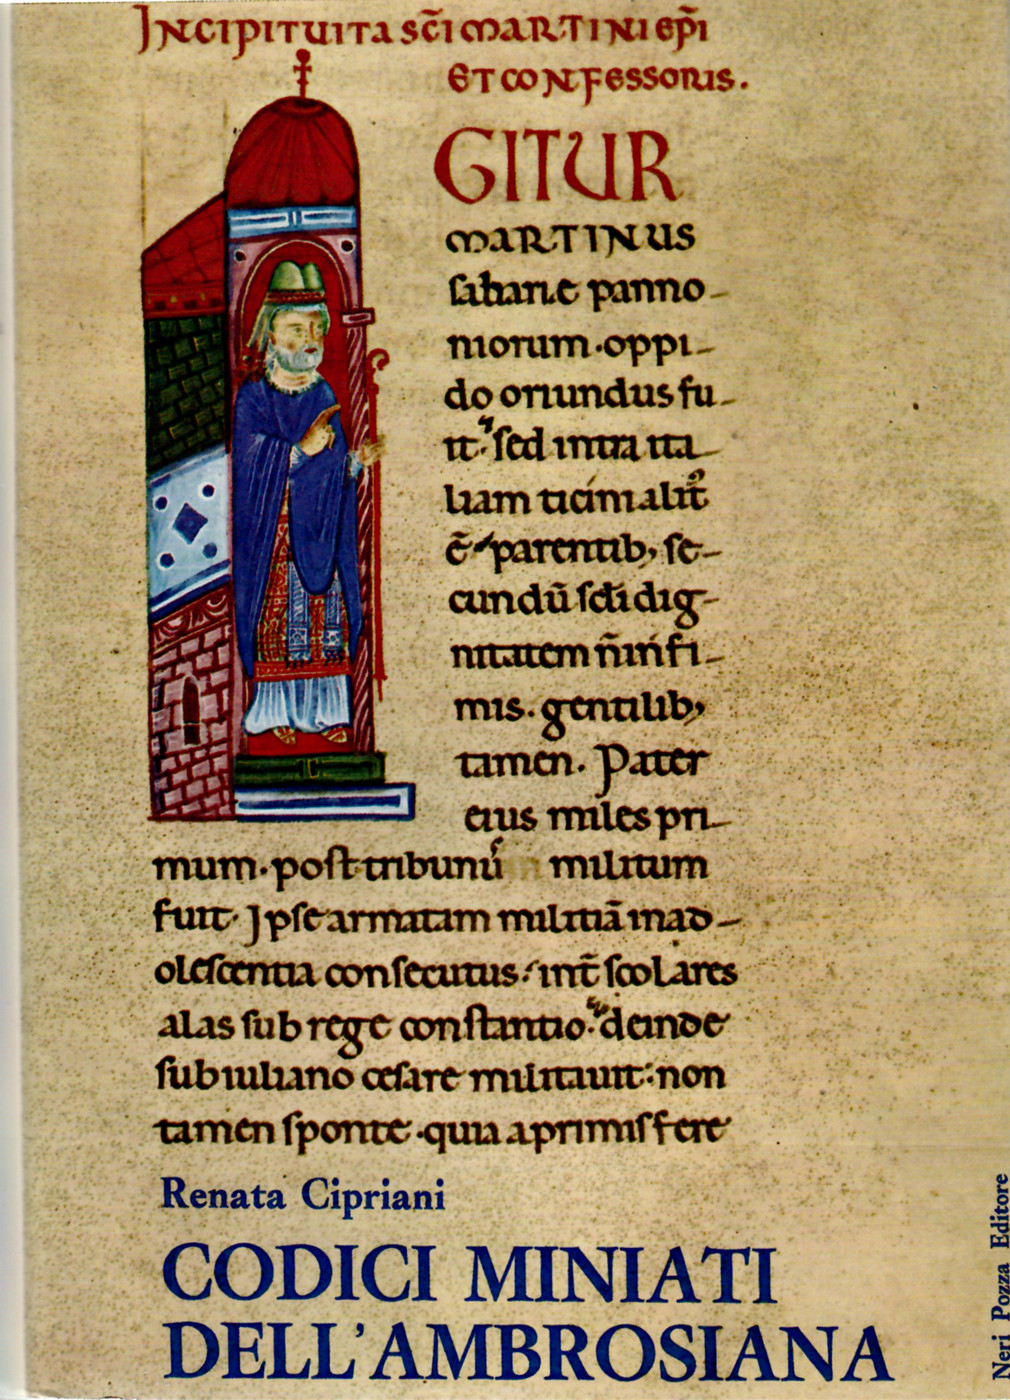 INCIPIT UITA SCĨ MARTINI EPĨ
ET CONFESSORIS.
GITUR
MARTINUS
sabarie panno-
niorum. oppi-
do oriundus fu-
it. sed intra ita-
liam ticini alit
ẽ parentib; se-
cundũ scđi dig-
nitatem ñ infi-
mis. gentilib;
tamen. Pater
eius miles pri-
mum. post tribunũ militum
fuit. Ipse armatam militiã in ad-
olescentia consecutus. int̃ scolares
alas sub rege constantio. deinde
sub iuliano cesare militauit. non
tamen sponte. quia a primis fere
Renata Cipriani
CODICI MINIATI
DELL'AMBROSIANA
Neri Pozza Editore